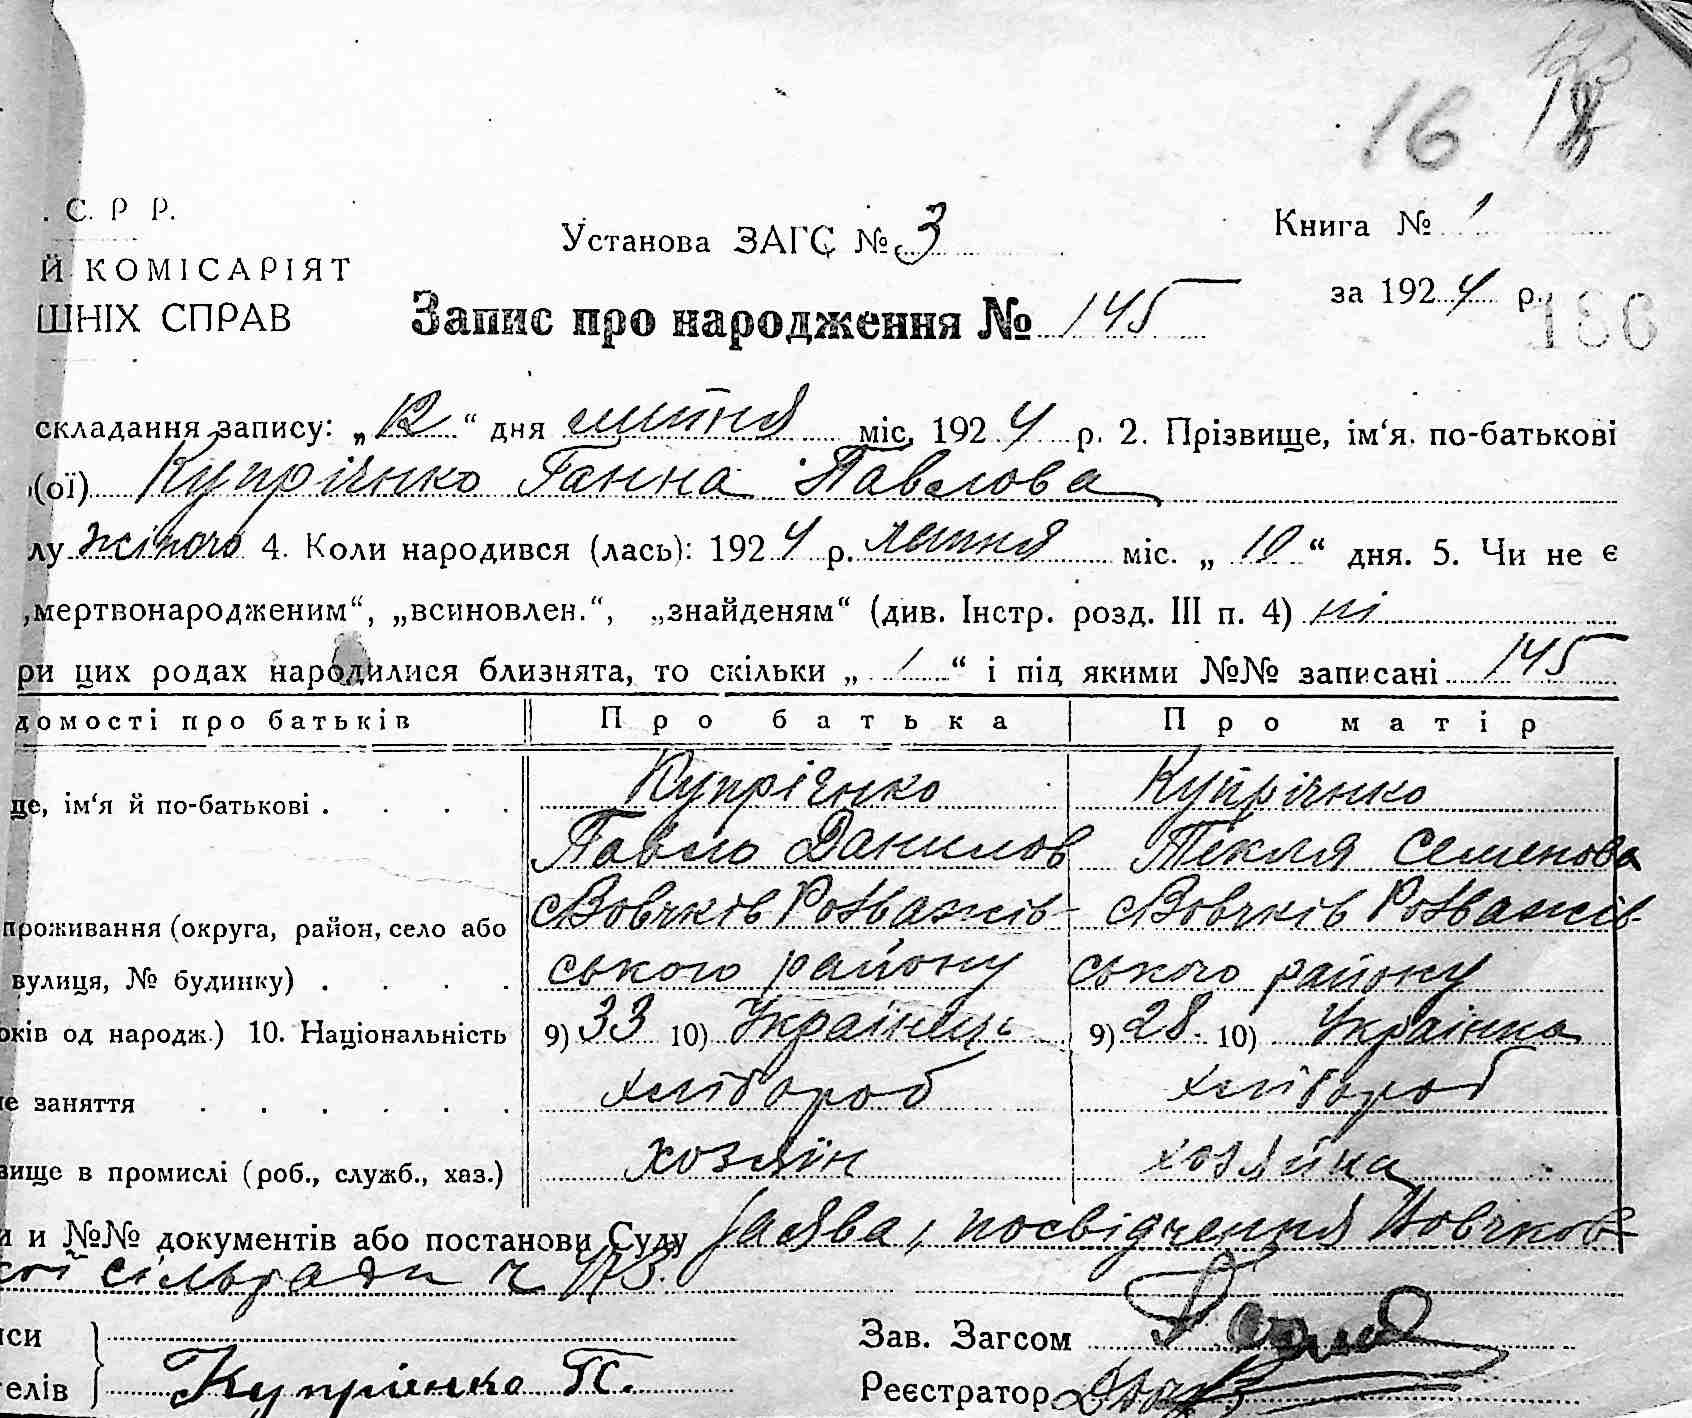 123
16 18
. С. Р Р.
Установа ЗАГС № 3
Книга № 1
Й КОМІСАРІЯТ
за 1924 р.
ШНІХ СПРАВ
Запис про народження № 145
186
складання запису: „12“ дня липня міс. 1924 р. 2. Прізвище, ім‘я. по-батькові
(ої) Купрієнко Ганна Павлова
лу жіночо 4. Коли народився (лась): 1924 р. липня міс. „10“ дня. 5. Чи не є
„мертвонародженим“, „всиновлен.“, „знайденям“ (див. Інстр. розд. III п. 4) ні
ри цих родах народилися близнята, то скільки „1“ і під якими №№ записані 145
домості про батьків Про батька Про матір
це, ім‘я й по-батькові . . . . Купрієнко Купрієнко
Павло Данилов Текля Семенова
Вовчків Розважів- Вовчків Розважів-
проживання (округа, район, село або
ського району ського району
вулиця, № будинку) . . . .
оків од народж.) 10. Національність 9) 33 10) Українець 9) 28. 10) Українка
не заняття . . . . . . хлібороб хлібороб
вище в промислі (роб., служб., хаз.) хозяїн хозяйка
и и №№ документів або постанови Суду Заява, посвідчення Вовчков-
ської сільради ч 173.
иси
Зав. Загсом
елів Купрієнко П.
Реєстратор